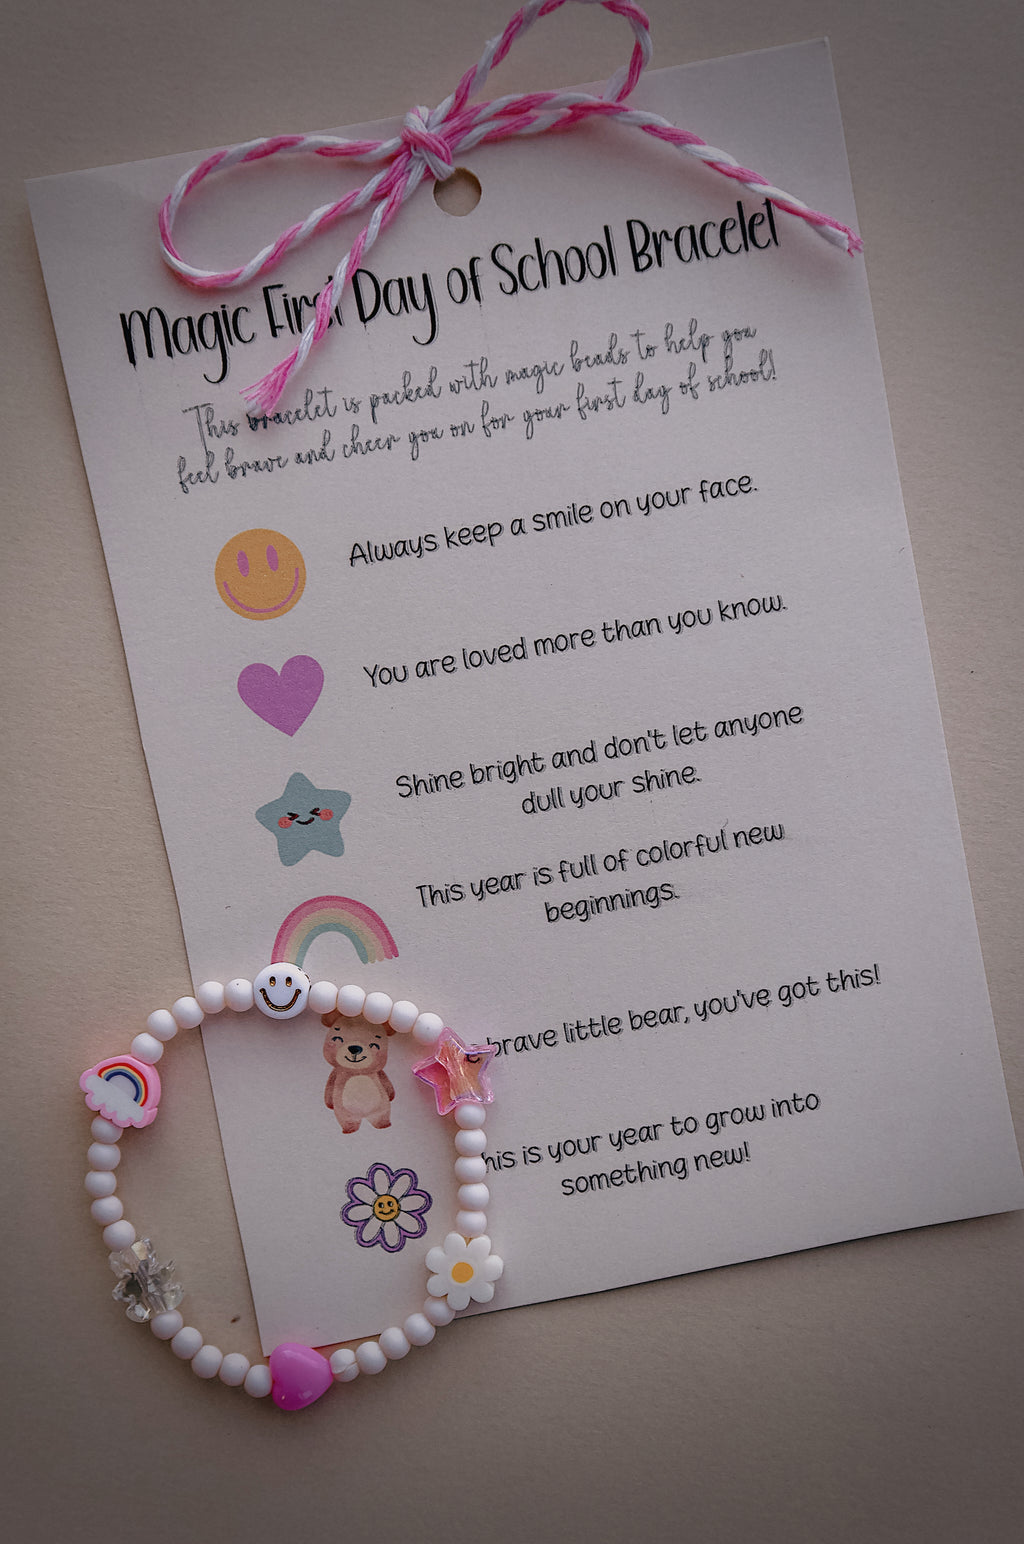 Magic First Day of School Bracelet
This bracelet is packed with magic beads to help you
feel brave and cheer you on for your first day of school!
Always keep a smile on your face.
You are loved more than you know.
Shine bright and don't let anyone
dull your shine.
This year is full of colorful new
beginnings.
brave little bear, you've got this!
his is your year to grow into
something new!